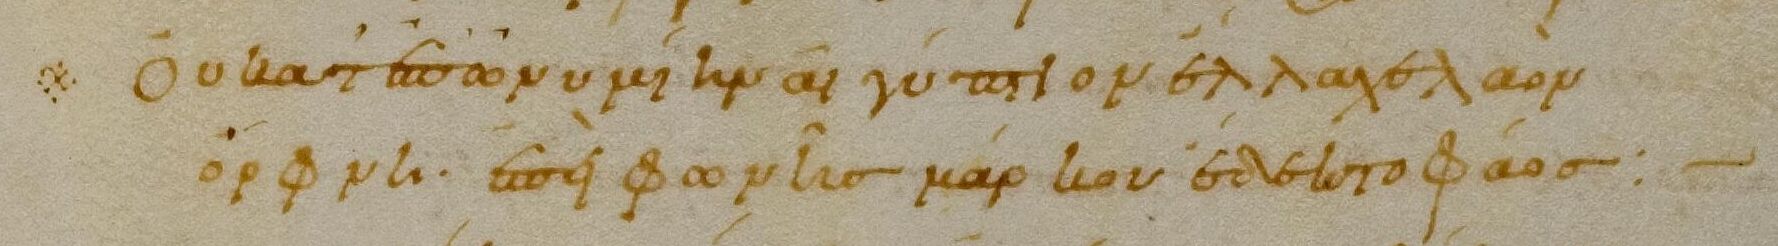 Οὐ κατ' ἐπωνυμίην αἰγύπτιον ἔλλαχε λαὸν
ὄρφνη· ἐπεὶ φωνῆς μάρκου ἔδεκτο φάος: –